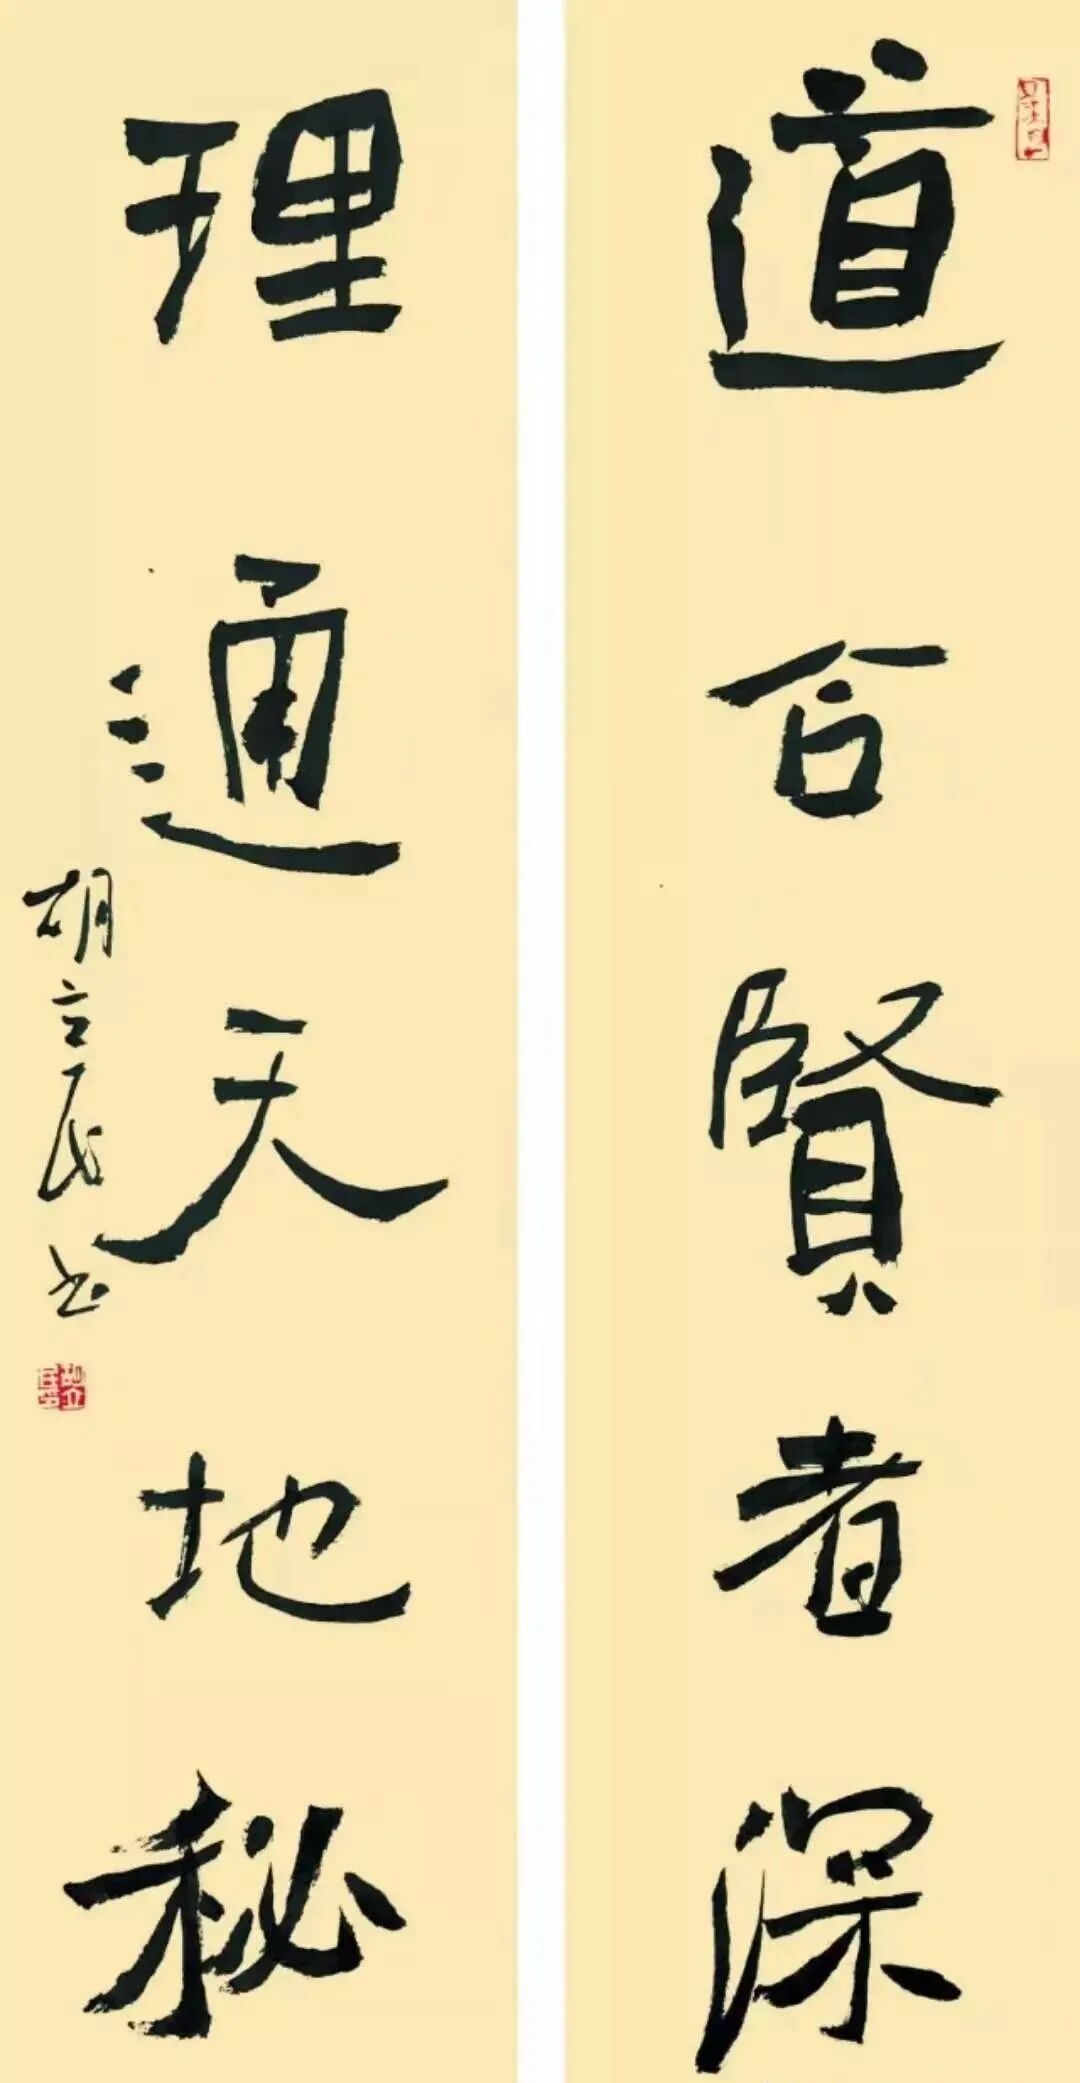 道合賢者深
理通天地秘
胡立民书